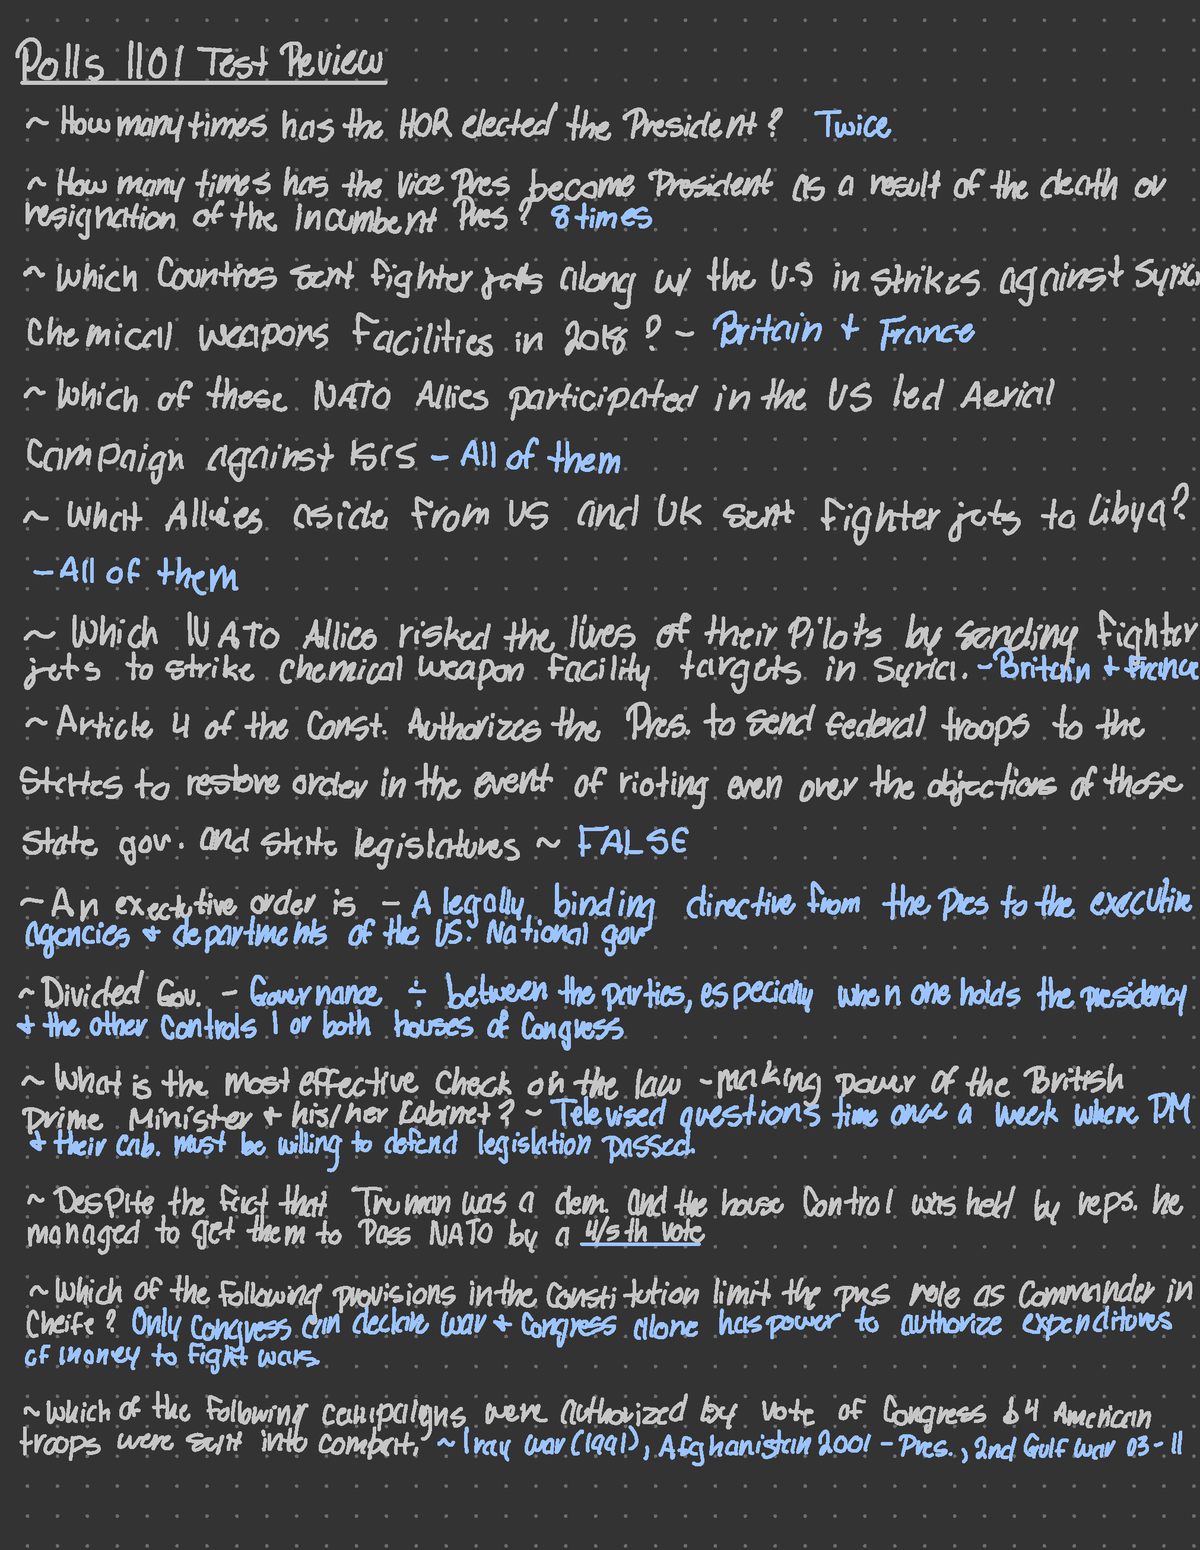 Polls 1101 Test Review
~ How many times has the HOR elected the President? Twice
~ How many times has the Vice Pres become President as a result of the death or
resignation of the Incumbent Pres? 8 times
~ Which Countires sent fighter jets along w/ the U.S in strikes against Syrian
Chemical weapons Facilities in 2018? - Britain + France
~ Which of these NATO Allies participated in the US led Aerial
Campaign against ISIS - All of them
~ What Allies aside from US and UK sent fighter jets to Libya?
- All of them
~ Which NATO Allies risked the lives of their Pilots by sending fighter
jets to strike chemical weapon Facility targets in Syria. - Britain + France
~ Article 4 of the Const. Authorizes the Pres. to send federal troops to the
States to restore order in the event of rioting even over the objections of those
state gov. and state legislatures ~ FALSE
~ An executive order is - A legally binding directive from the Pres to the executive
agencies + departments of the US. National gov
~ Divided Gov. - Governance ÷ between the parties, especially when one holds the presidency
+ the other controls 1 or both houses of Congress
~ What is the most effective Check on the law-making power of the British
Prime Minister + his/her Cabinet? ~ Televised questions time once a week where PM
+ their cab. must be willing to defend legislation passed.
~ Despite the fact that Truman was a dem. and the house Control was held by reps. he
managed to get them to Pass NATO by a 4/5th vote
~ Which of the following provisions in the Constitution limit the pres role as Commander in
Cheife? Only Congress can declare war + Congress alone has power to authorize expenditures
of money to fight wars.
~ Which of the following campaigns were authorized by vote of Congress b4 American
troops were sent into combat. ~ Iraq war (1991), Afghanistan 2001 - Pres., 2nd Gulf war 03-11